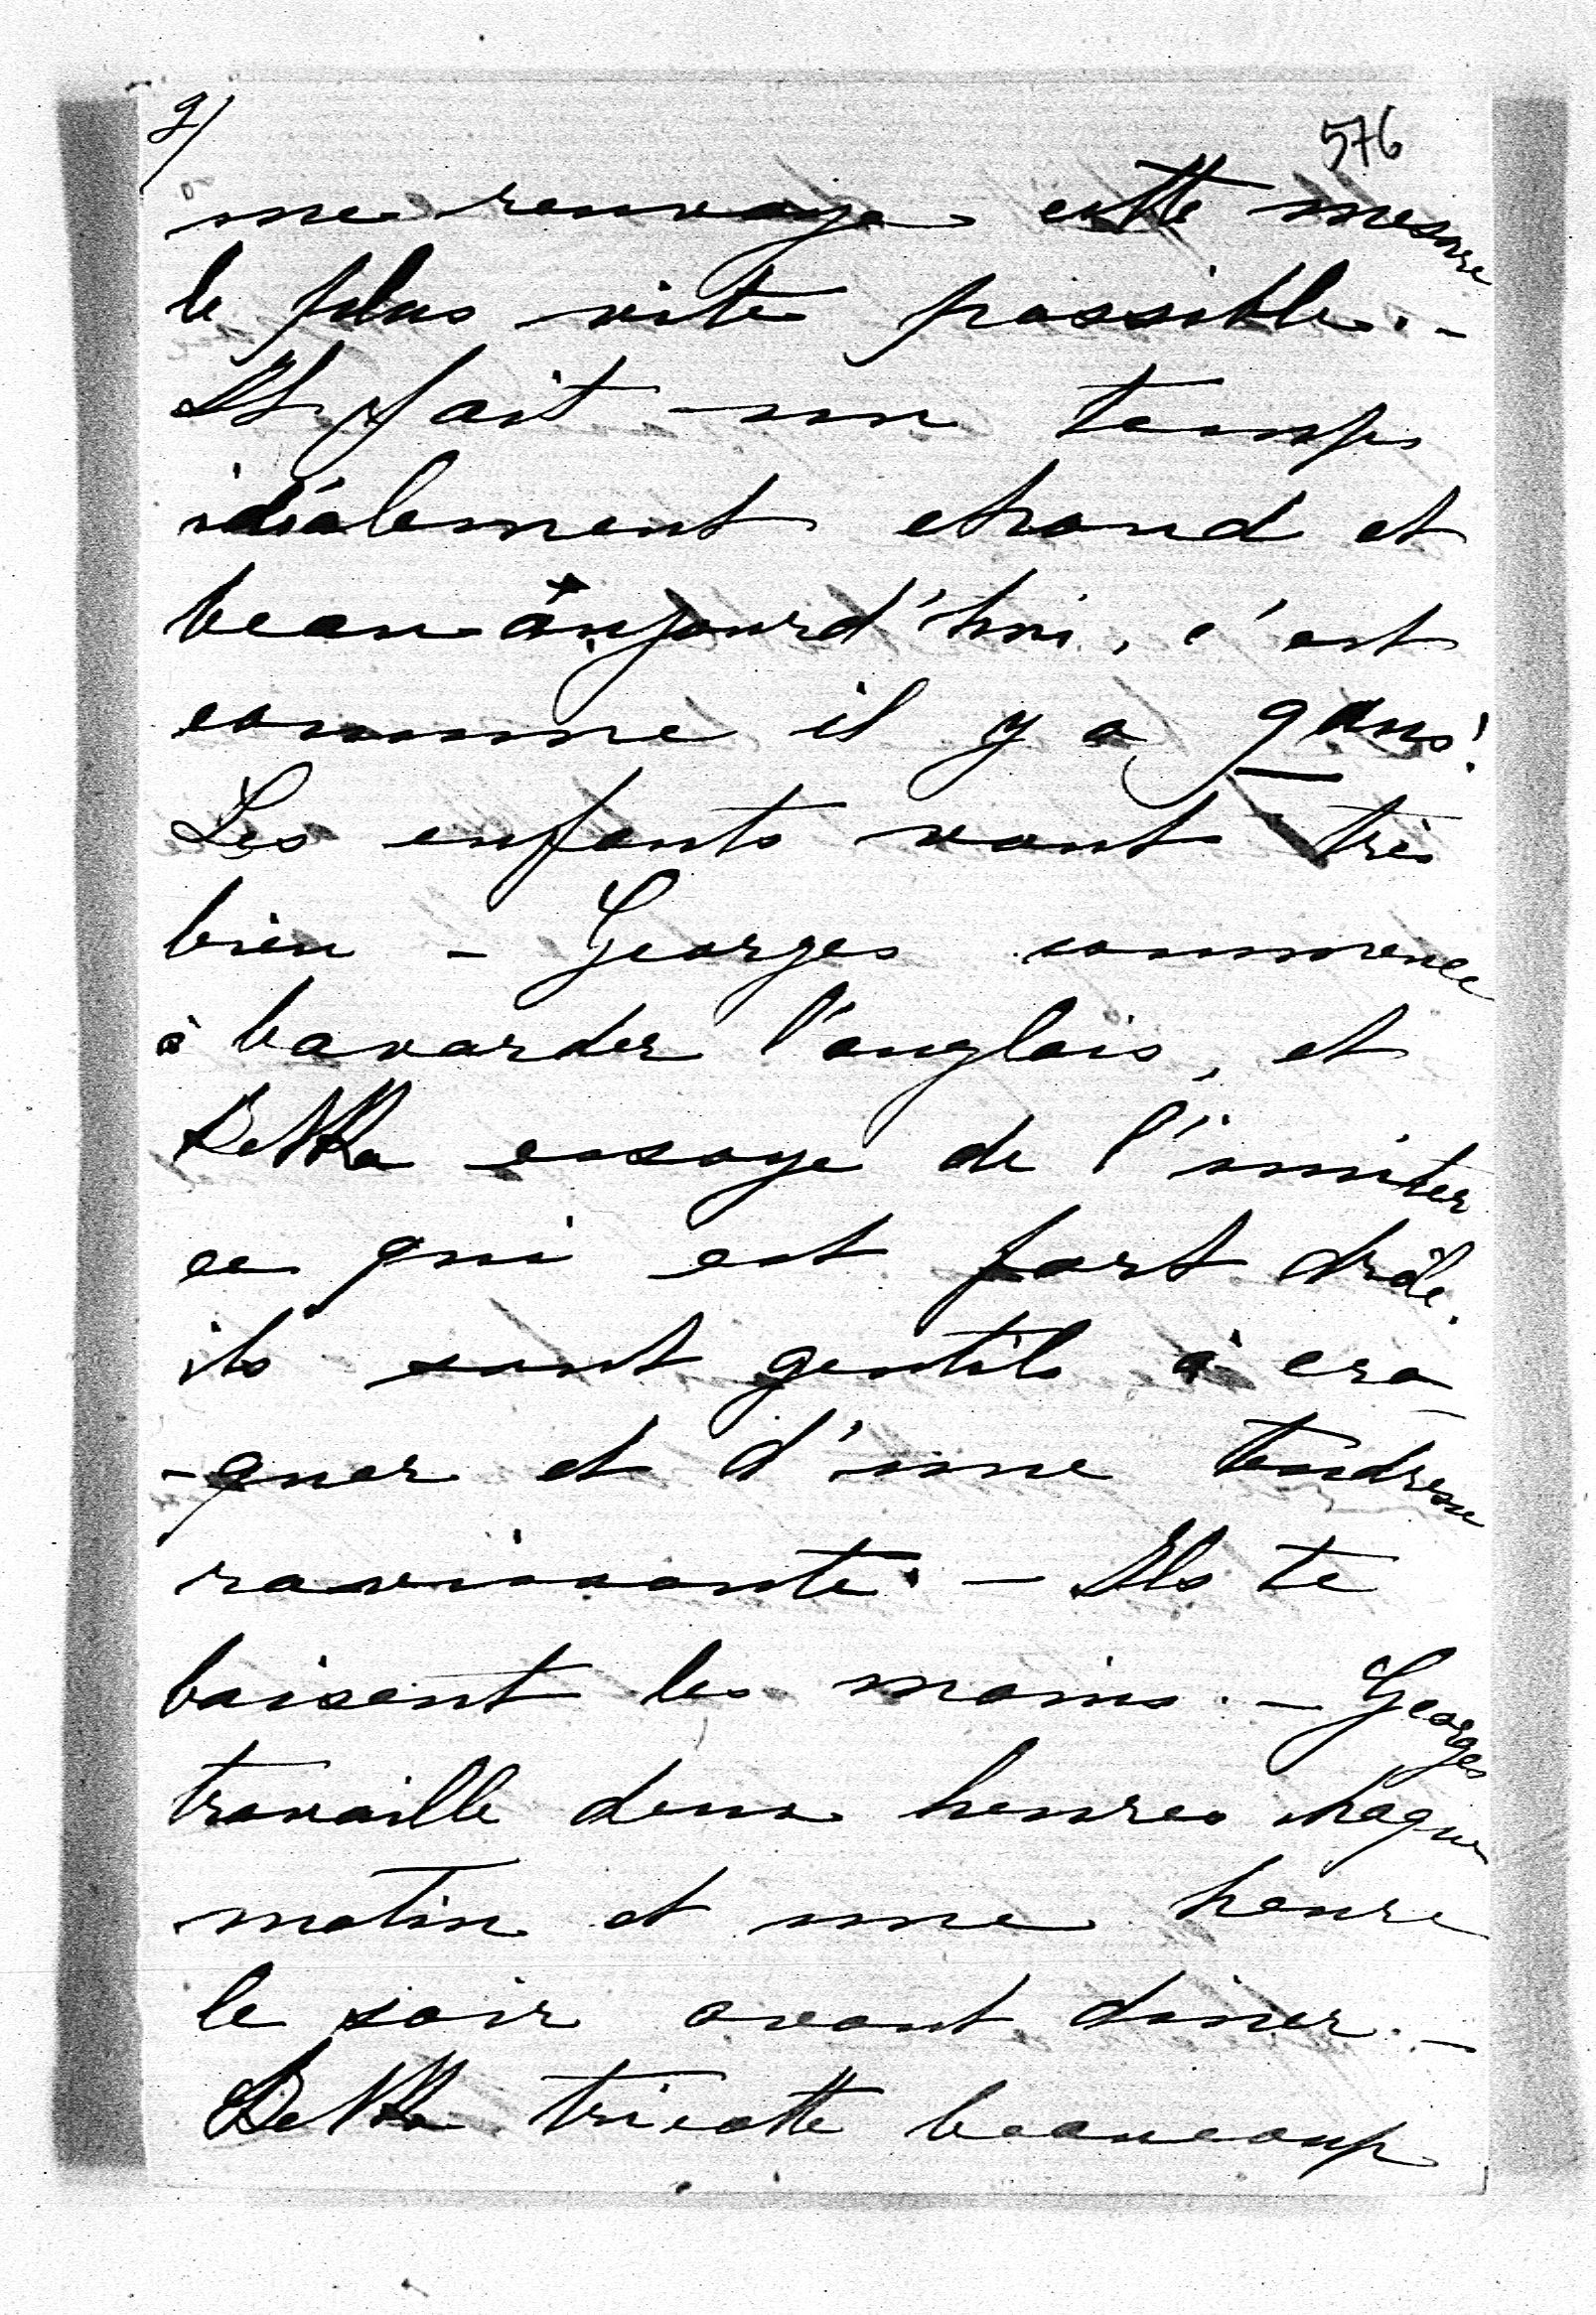 2/
576
me renvoye cette mesure
le plus vite possible. -
Il fait un temps
idéalement chaud et
beau aujourd'hui, c'est
comme il y a 9 ans!
Les enfants vont très
bien - Georges commence
à bavarder l'anglais, et
Dekka essaye de l'imiter
ce qui est fort drôle.
ils sont gentils à cro-
-quer et d'une tendresse
ravissante. - Ils te
baisent les mains. - Georges
travaille deux heures chaque
matin et une heure
le soir avant diner. -
Dekka tricotte beaucoup